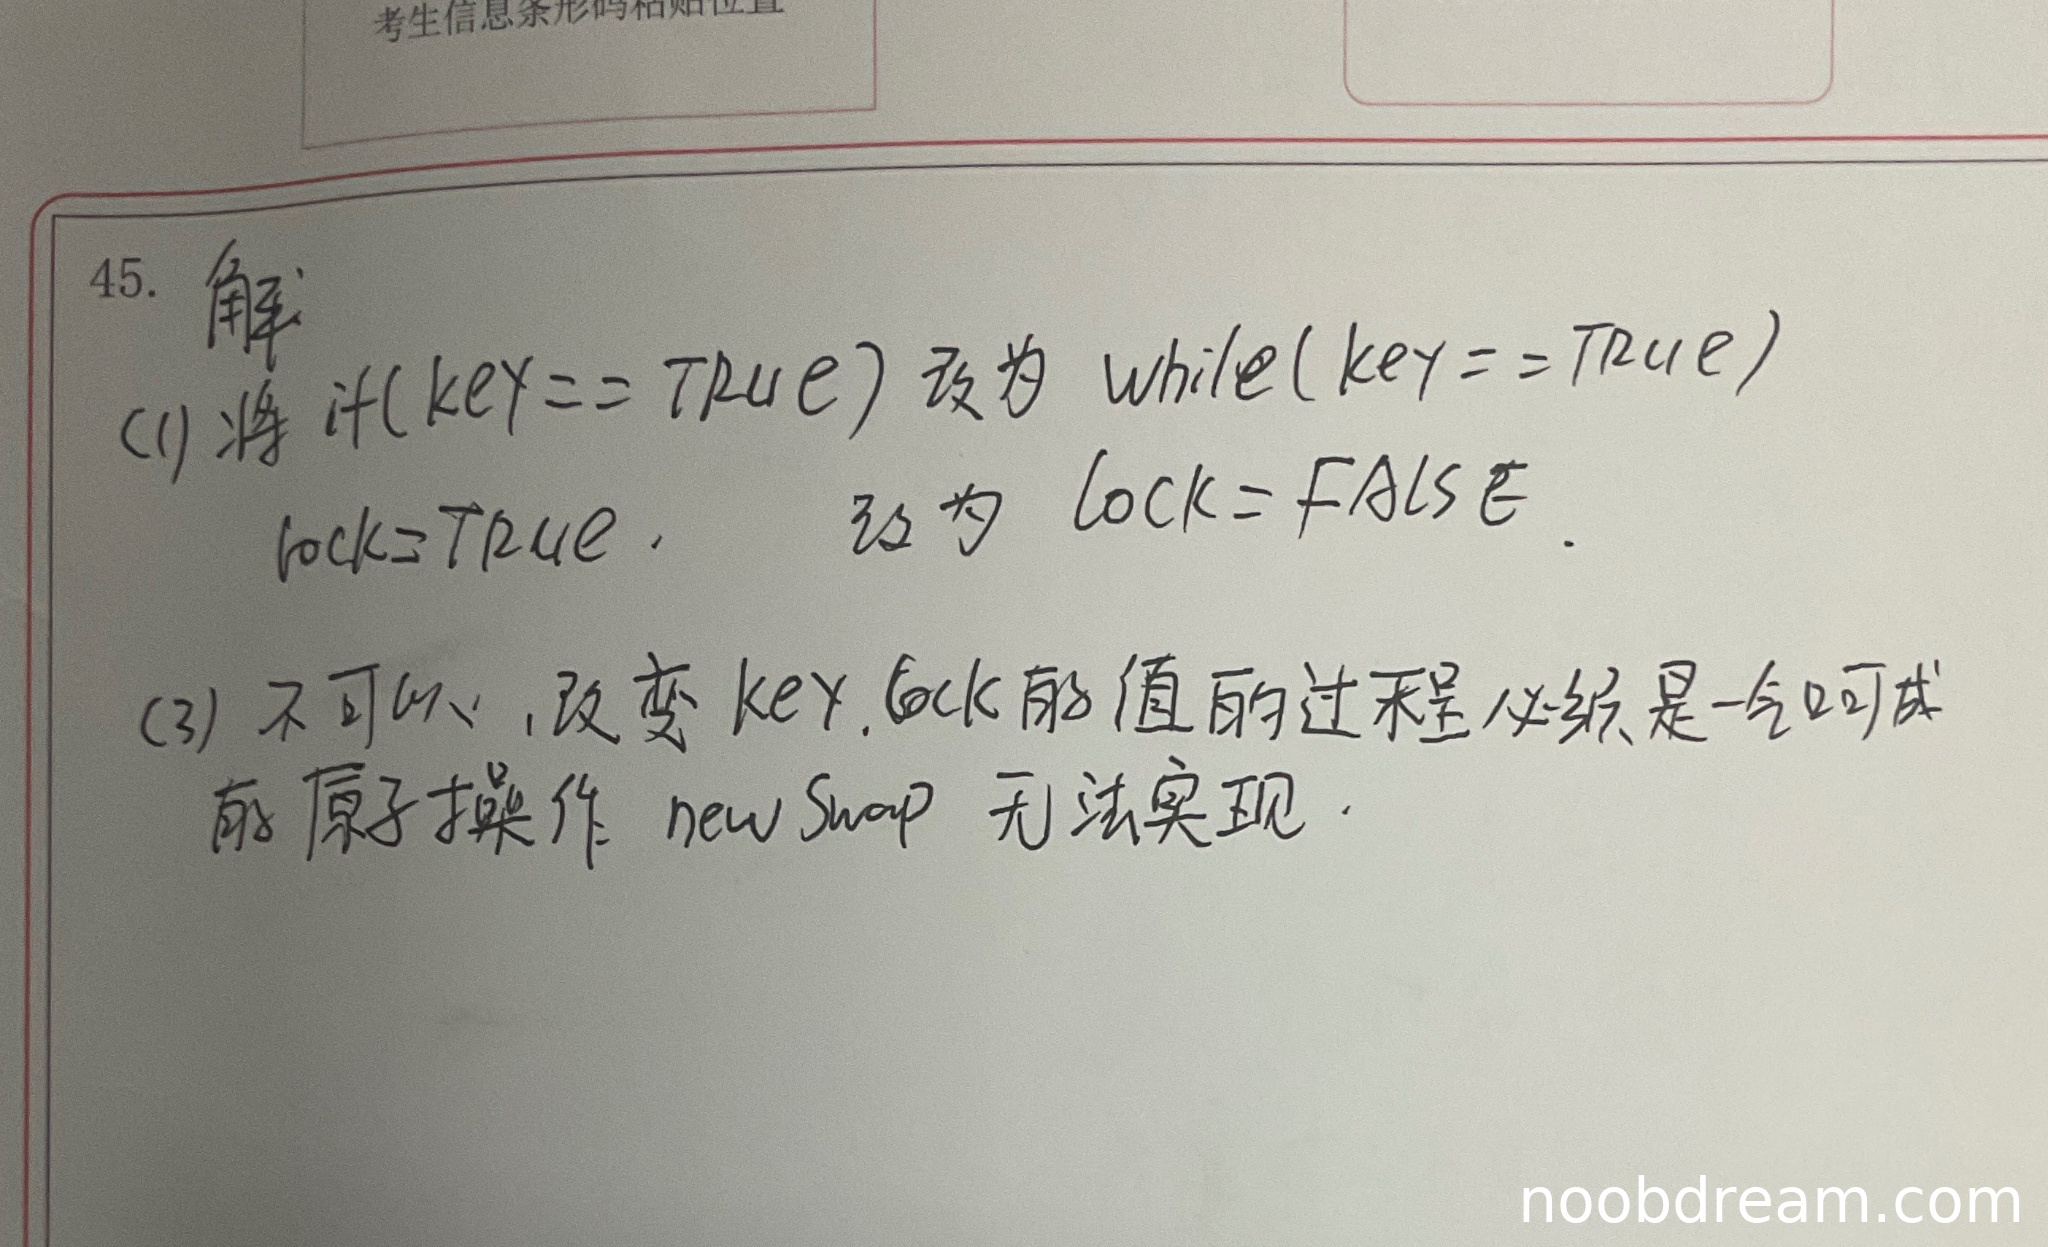 考生信息条形码粘贴位置
45. 解
(1) 将 if(key==TRUe) 改为 while(key==TRUe)
lock=TRUe. 改为 lock=FAlSE.
(3) 不可以,改变 key.lock的值的过程必须是一气呵成
的原子操作 newSwap 无法实现.
noobdream.com